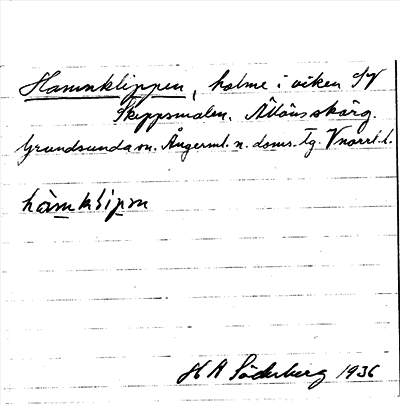 Hamnklippen, holme i viken SV
Skeppsmalen.
Grundsunda sn. Ångerml. n. doms. Tg. Vnorrl. l.
hàmklipm
H A Söderberg 1936